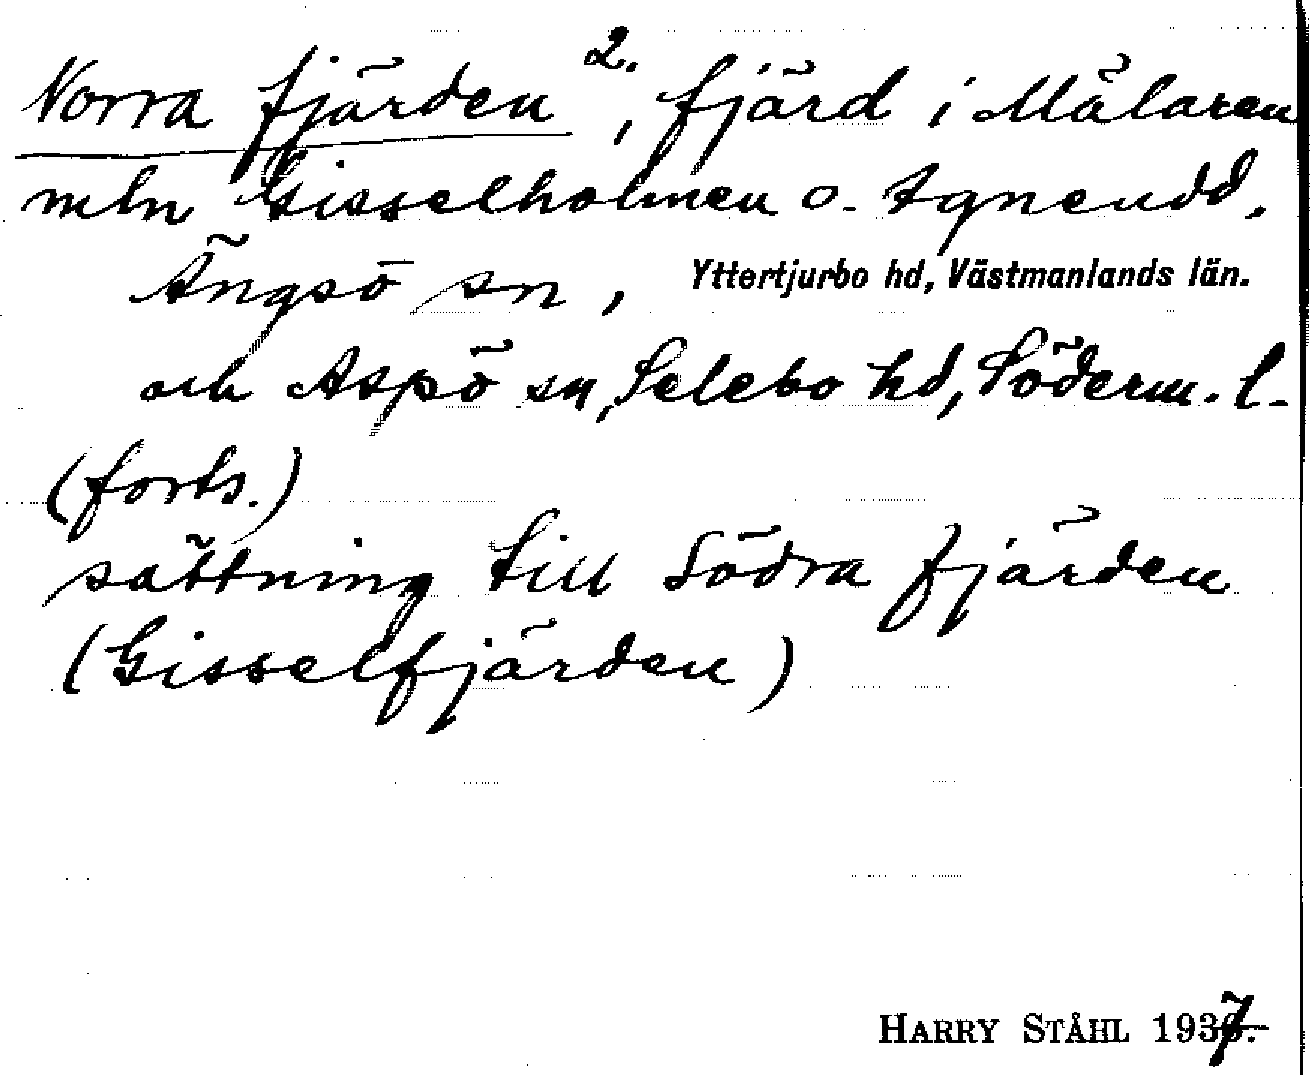 Norra fjärden 2., fjärd i Mälaren
mln Gisselholmen o. Agneudd.
Ängsö sn, Yttertjurbo hd, Västmanlands län.
och Aspö sn, Selebo hd, Söderm. l.
(forts.)
sättning till Södra fjärden
(Gisselfjärden)
HARRY STÅHL 1937.